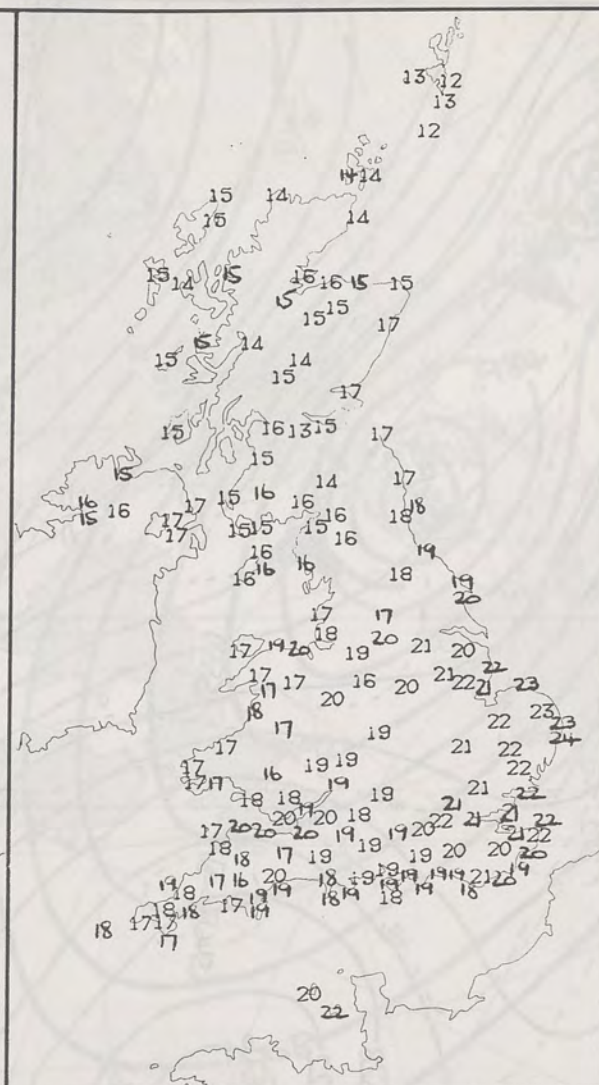 13 12
13
12
14 14
15 14
15 14
15 14 15 16 16 15 15
15 15
15 17
15 14
15 14
15
17
15 16 13 15 17
15
15 17
16 17 15 16 14 18
15 16 17 16 16 18
17 15 15 15 16
16 19
16 16 16 18 19
20
17 17
18 20
17 19 20 19 21 20
22
17 17 16 21 22 21 23
17 20 20
18 23
17 22 23
19 24
17 21 22
17 19 19 22
17 17 16 19 21
18 18 19 21 22
19 18 22 21 21 22
20 20
17 20 20 20 19 19 20 21 22
18 17 19 19 20 20 20
18 19
17 16 20 18 19 19 19 19 21 20 19
19 18 19 19 18 19 19 19 18
18 17 18 17 19 18
18 17 17
17
20
22